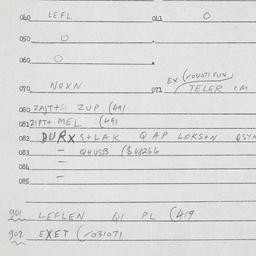 060 LEFL 061 0
050 0
060 0
070 NOXN 071 EX (/031071 FUN) TELER CM
080 ZUP (491
081 ZIPT+ MEL (491
082 DURX S+LAK Q AP LOKS+N
083 - QHUSB ($48266
084 -
085 -
901 LEFLEN QI PL (419
902 EXET (/031071